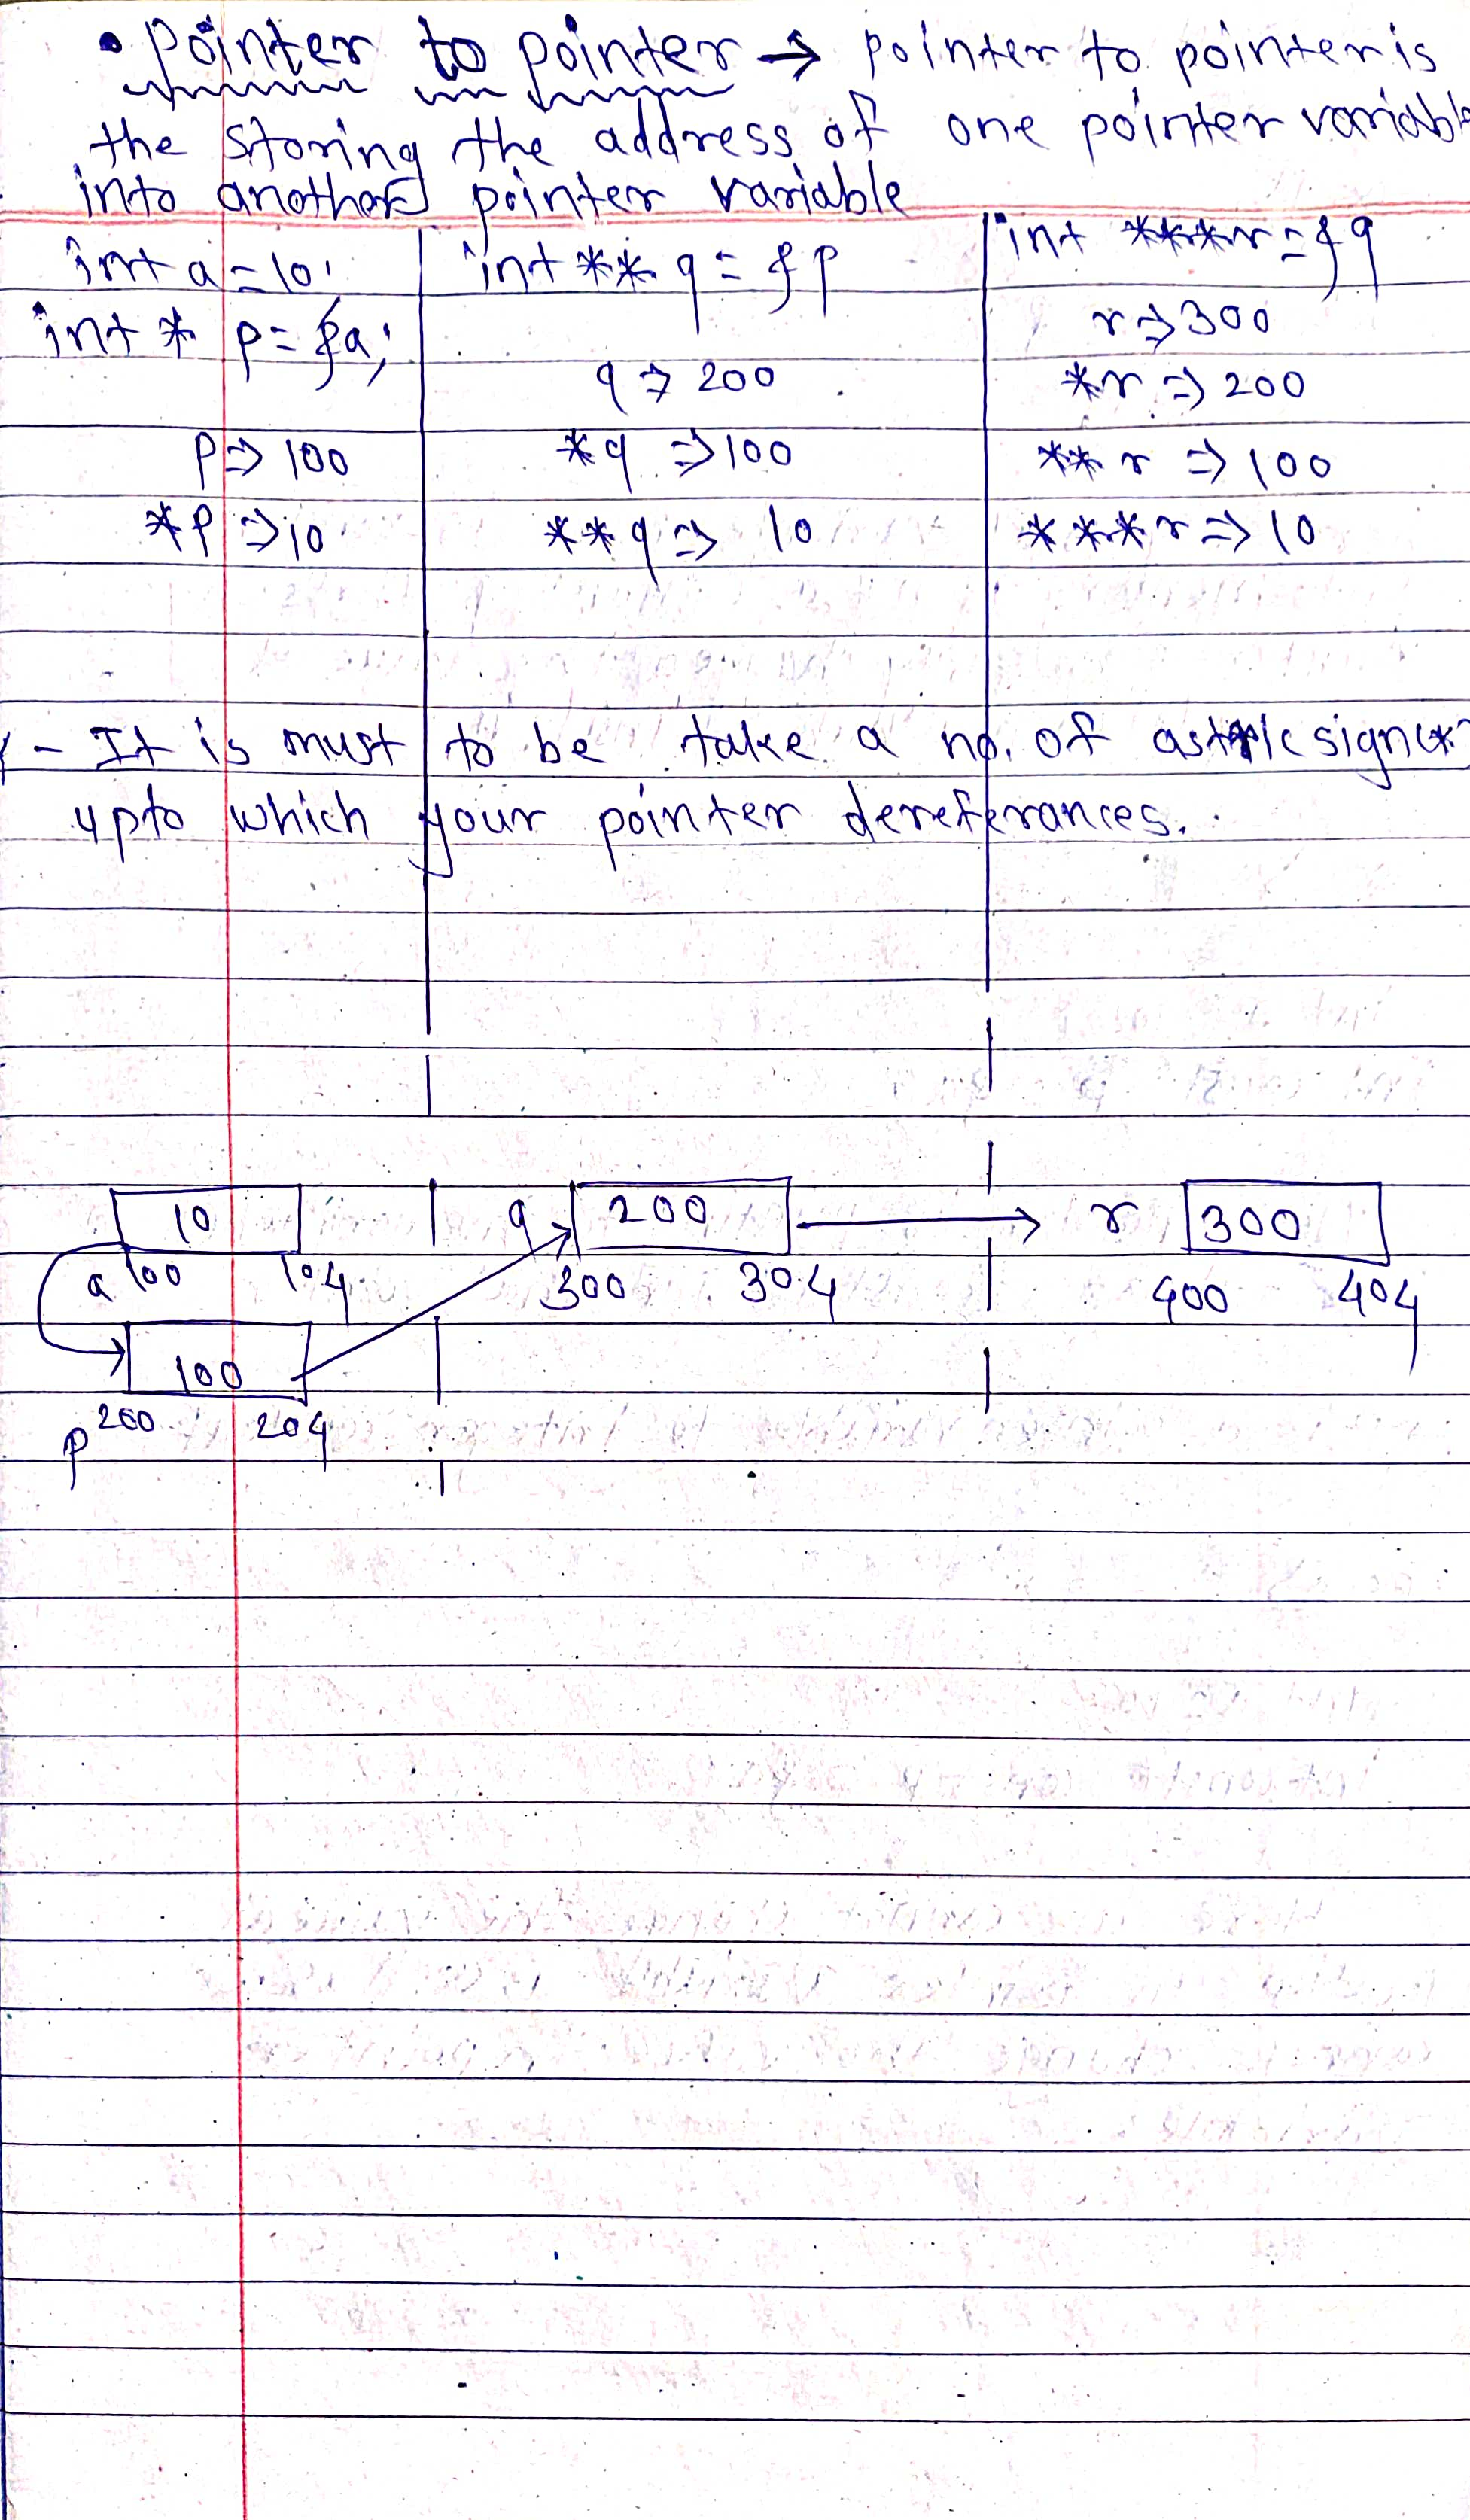 • Pointer to pointer → pointer to pointer is
the storing the address of one pointer variable
into another pointer variable
int a = 10;
int * p = &a;
p => 100
*p => 10
int ** q = &p
q => 200
*q => 100
**q => 10
int ***r = &q
r => 300
*r => 200
**r => 100
***r => 10
- It is must to be take a no. of astric sign(*)
upto which your pointer dereferances.
10
a 100 104
100
p 200 204
q 200
300 304
r 300
400 404